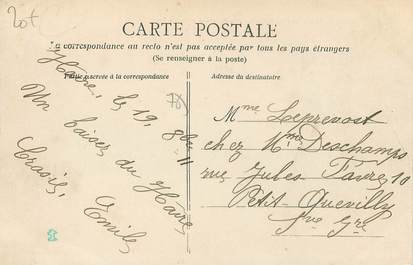 20t
CARTE POSTALE
La correspondance au recto n'est pas acceptée par tous les pays étrangers
(Se renseigner à la poste)
Partie réservée à la correspondance
Adresse du destinataire
Havre, le 19, 8bre 11
Un baiser du Havre
Emile
Mme Leprevost
chez Mme Deschamps
rue Jules Favre 10
Petit-Quevilly
Sne Ire